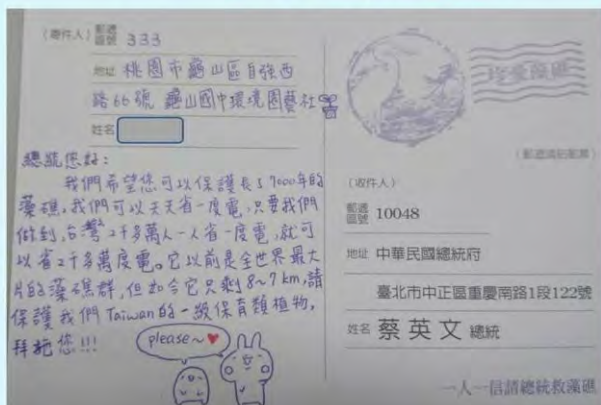 (寄件人)
郵遞區號 333
地址 桃園市龜山區自強西
路66號 龜山國中環境園藝社
姓名
總統您好:
我們希望您可以保護長了7000年的
藻礁,我們可以天天省一度電,只要我們
做到,台灣2千多萬人一人省一度電,就可
以省2千多萬度電。它以前是全世界最大
片的藻礁群,但如今它只剩8~7km,請
保護我們Taiwan的一級保育類植物,
拜託您!!!
please~♥
珍愛藻礁
(郵遞請貼郵票)
(收件人)
郵遞區號 10048
地址 中華民國總統府
臺北市中正區重慶南路1段122號
姓名 蔡英文 總統
一人一信請總統救藻礁